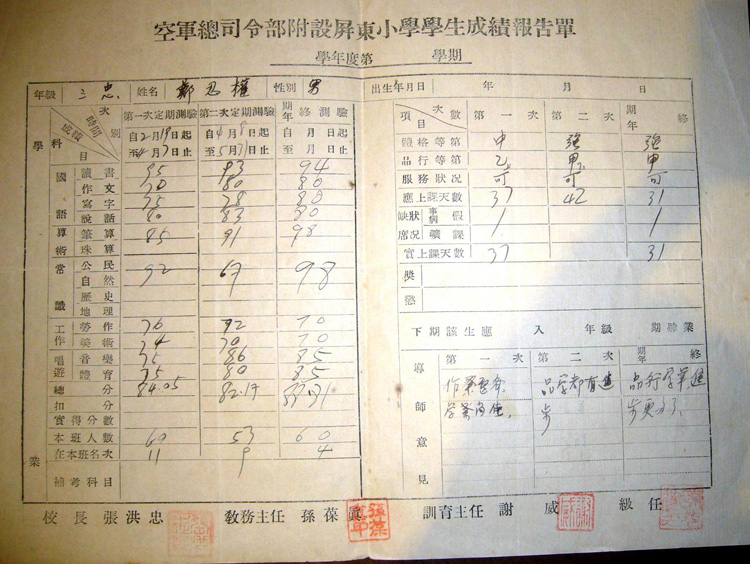 空軍總司令部附設屏東小學學生成績報告單
學年度第 學期
年級 三忠 姓名 鄭 性別 男 出生年月日 年 月 日
次別 時間 成績 科目
第一次定期測驗 第二次定期測驗 期年終測驗
自2月19日起 自4月8日起 自 月 日起
至4月7日止 至5月 日止 至 月 日止
學
業
國語 讀書 95 93 94
作文 70 80 80
寫字 75 78 80
說話 80 83 80
算術 筆算 85 91 98
珠算
常識 公民 92 67 98
自然
歷史
地理
工作 勞作 76 92 70
美術 74 70 70
唱遊 音樂 75 86 85
體育 75 80 85
總分 84.05 82.17
扣分
實得分數
本班人數 60 53 60
在本班名次 11 9 4
補考科目
項目 次數 第一次 第二次 期年終
體格等第 中 強 強
品行等第 乙 甲 甲
服務狀況 可 可 可
應上課天數 37 42 31
缺席狀况 事病假 1 1
曠課
實上課天數 37 31
獎懲
下期該生應 入 年級 期肄業
導師意見
第一次 第二次 期年終
作業整齊 學業尚佳. 品學都有進步 品行學業進步更多了.
校長 張洪忠 教務主任 孫葆眞 訓育主任 謝威 級任
孫葆眞印
謝威